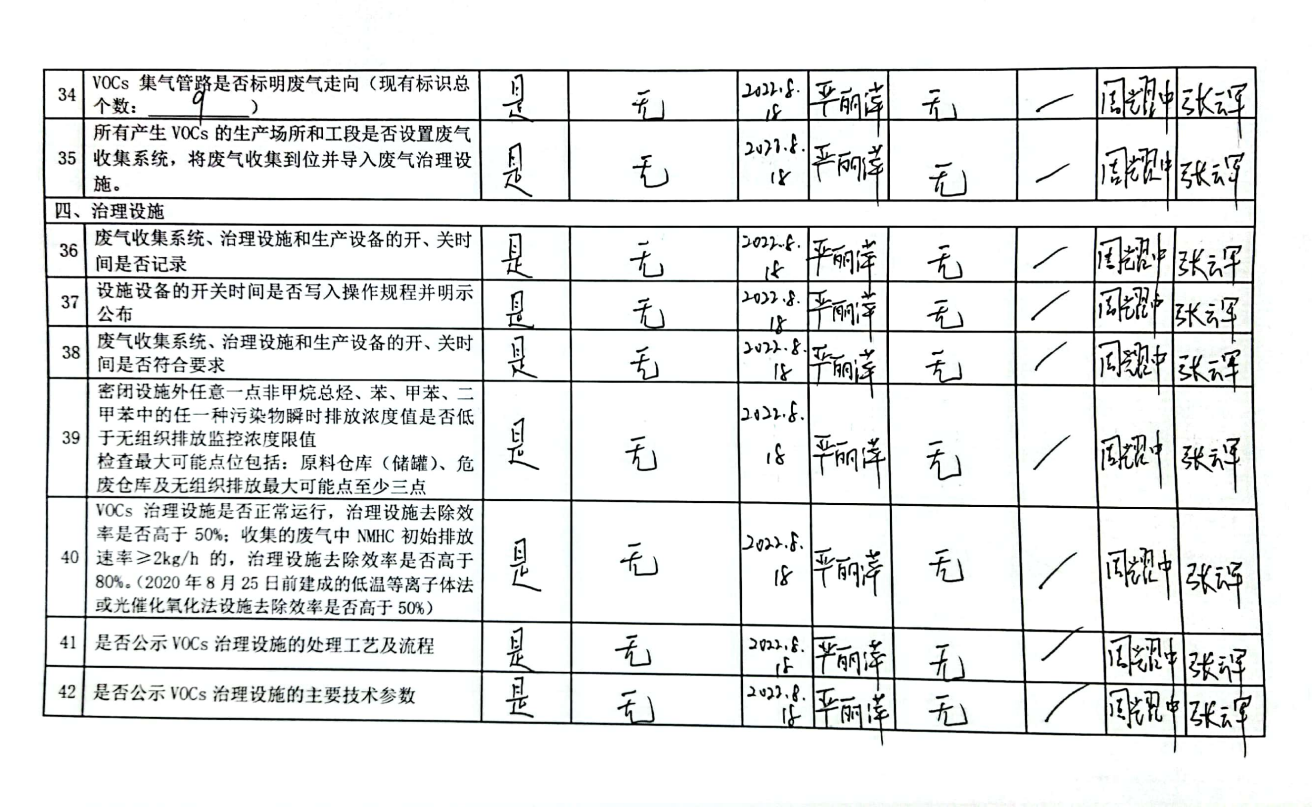 34 VOCs 集气管路是否标明废气走向（现有标识总 是 无 2022.8. 严丽萍 无 / 周耀中 张云军
个数： 9 ） 18
所有产生 VOCs 的生产场所和工段是否设置废气
35 收集系统，将废气收集到位并导入废气治理设 是 无 2022.8. 严丽萍 无 / 周耀中 张云军
施。 18
四、治理设施
36 废气收集系统、治理设施和生产设备的开、关时 是 无 2022.8. 严丽萍 无 / 周耀中 张云军
间是否记录 18
37 设施设备的开关时间是否写入操作规程并明示 是 无 2022.8. 严丽萍 无 / 周耀中 张云军
公布 18
38 废气收集系统、治理设施和生产设备的开、关时 是 无 2022.8. 严丽萍 无 / 周耀中 张云军
间是否符合要求 18
密闭设施外任意一点非甲烷总烃、苯、甲苯、二
甲苯中的任一种污染物瞬时排放浓度值是否低 2022.8.
39 于无组织排放监控浓度限值 是 无 18 严丽萍 无 / 周耀中 张云军
检查最大可能点位包括：原料仓库（储罐）、危
废仓库及无组织排放最大可能点至少三点
VOCs 治理设施是否正常运行，治理设施去除效
率是否高于 50%；收集的废气中 NMHC 初始排放 2022.8.
40 速率≥2kg/h 的，治理设施去除效率是否高于 是 无 18 严丽萍 无 / 周耀中 张云军
80%。（2020 年 8 月 25 日前建成的低温等离子体法
或光催化氧化法设施去除效率是否高于 50%）
41 是否公示 VOCs 治理设施的处理工艺及流程 是 无 2022.8. 18 严丽萍 无 / 周耀中 张云军
42 是否公示 VOCs 治理设施的主要技术参数 是 无 2022.8. 18 严丽萍 无 / 周耀中 张云军